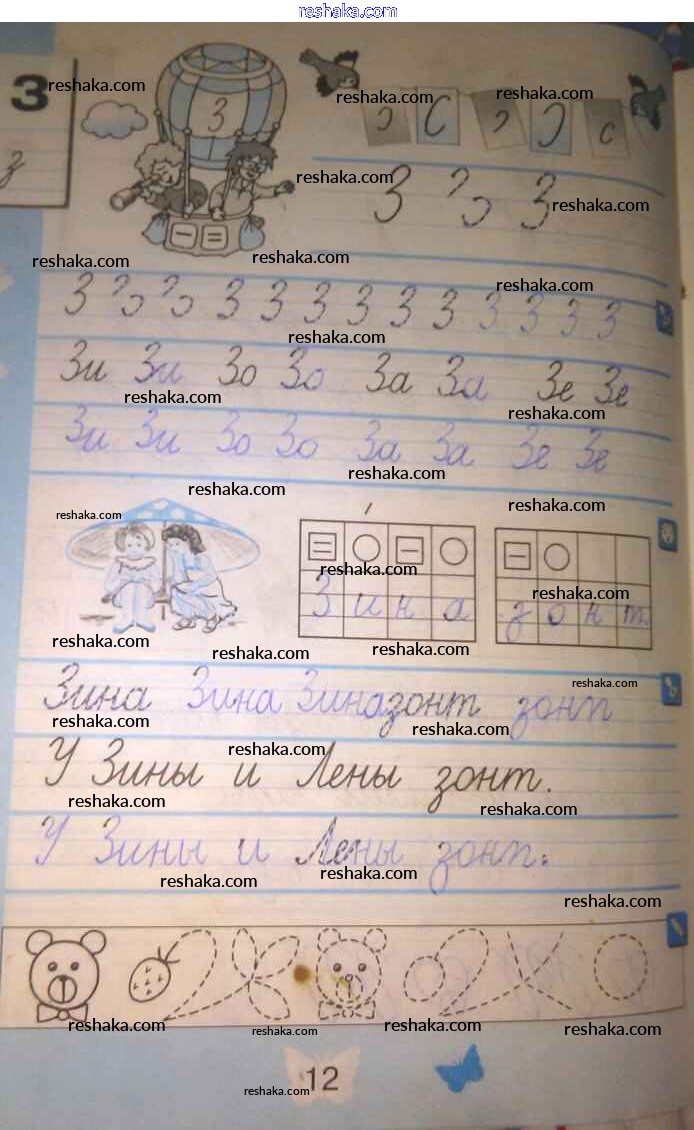 reshaka.com
З
з
З
reshaka.com reshaka.com reshaka.com
reshaka.com
З З
reshaka.com
reshaka.com reshaka.com
reshaka.com
З З З З З З З З З З
reshaka.com
Зи Зи Зо Зо За За Зе Зе
reshaka.com reshaka.com
Зи Зи Зо Зо За За Зе Зе
reshaka.com
reshaka.com reshaka.com
reshaka.com
reshaka.com reshaka.com
Зина зонт
reshaka.com reshaka.com reshaka.com
reshaka.com
Зина Зина Зина зонт зонт
reshaka.com reshaka.com
У Зины и Лены зонт.
reshaka.com
reshaka.com reshaka.com
У Зины и Лены зонт.
reshaka.com reshaka.com
reshaka.com
reshaka.com reshaka.com reshaka.com reshaka.com
12
reshaka.com